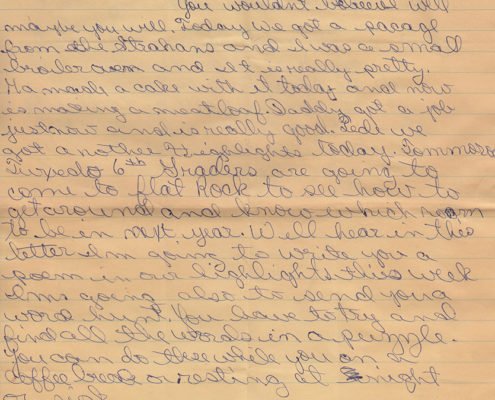 You wouldn't believe will
maybe you will. Today we got a pacage
from the Strahans and I was a small
broiler oven and it is really pretty.
Ma made a cake with it today and now
is making a meatloaf. Daddy got a job
just now and is really good. Todi we
got another Highlights today. Tommorow
Tuxedo 6th Graders are going to
come to flat Rock to see how to
get around and know which room
to be in next year. Will hear in this
letter I'm going to write you a
poem in our highlights this week
I'ms going also to send you a
word hunt. You have to try and
find all the words in a puzzle.
You can do this while you on a
coffee break or resting at night